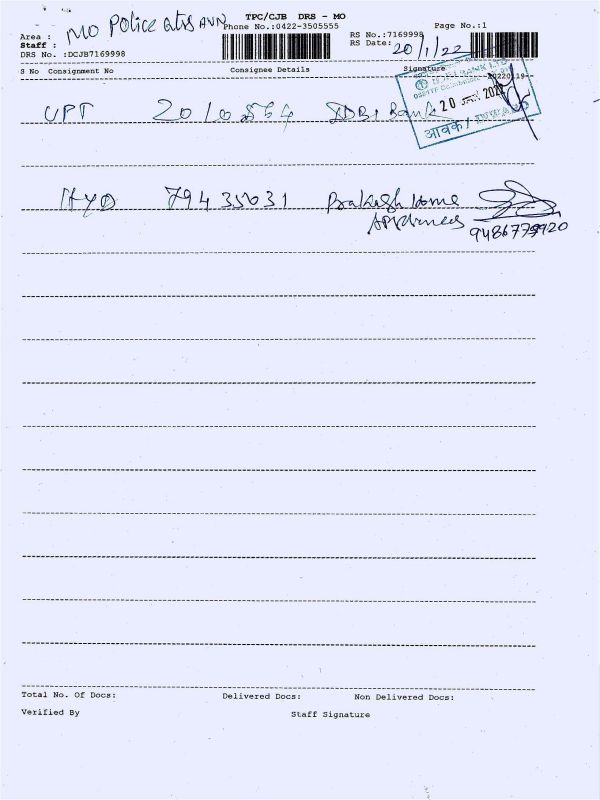 TPC/CJB DRS - MO
Area : MO Police Qtrs AVN Phone No.:0422-3505555 Page No.:1
Staff : RS No.:7169998
DRS No. :DCJB7169998 RS Date: 20/1/22
S No Consignment No Consignee Details Signature
20 JAN 2022
आवक
UPT 2010 IDBI Bank
HYD 79435031 Prakash Home
Appliances
9486779920
Total No. Of Docs: Delivered Docs: Non Delivered Docs:
Verified By Staff Signature